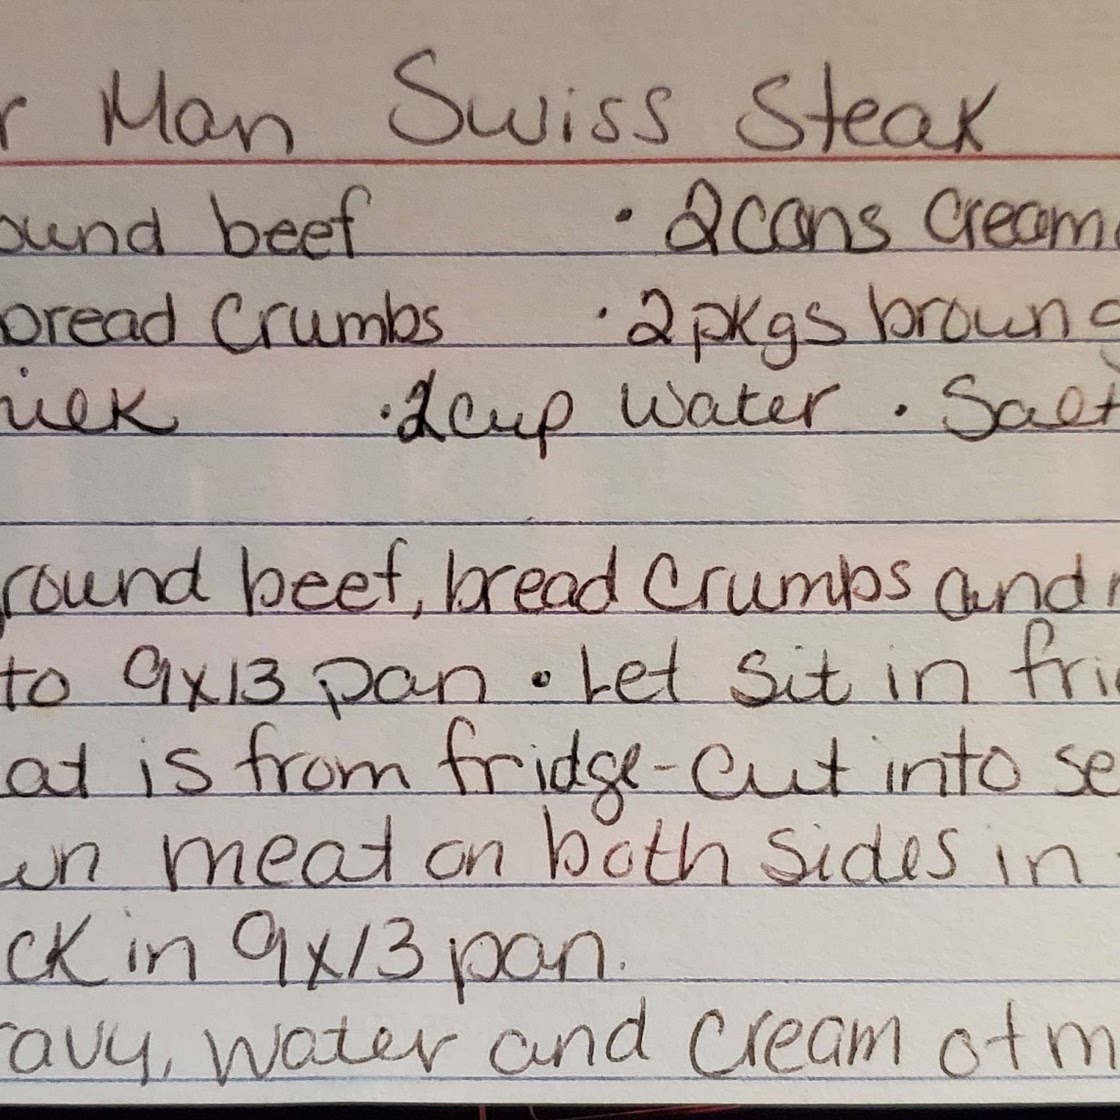 r Man Swiss Steak
ound beef · 2 cans Cream
bread Crumbs · 2 pkgs brown g
· 2 cup Water · Salt
round beef, bread Crumbs and
to 9x13 pan • Let sit in fri
at is from fridge - cut into se
wn meat on both sides in
ck in 9x13 pan.
ravy, water and cream of m